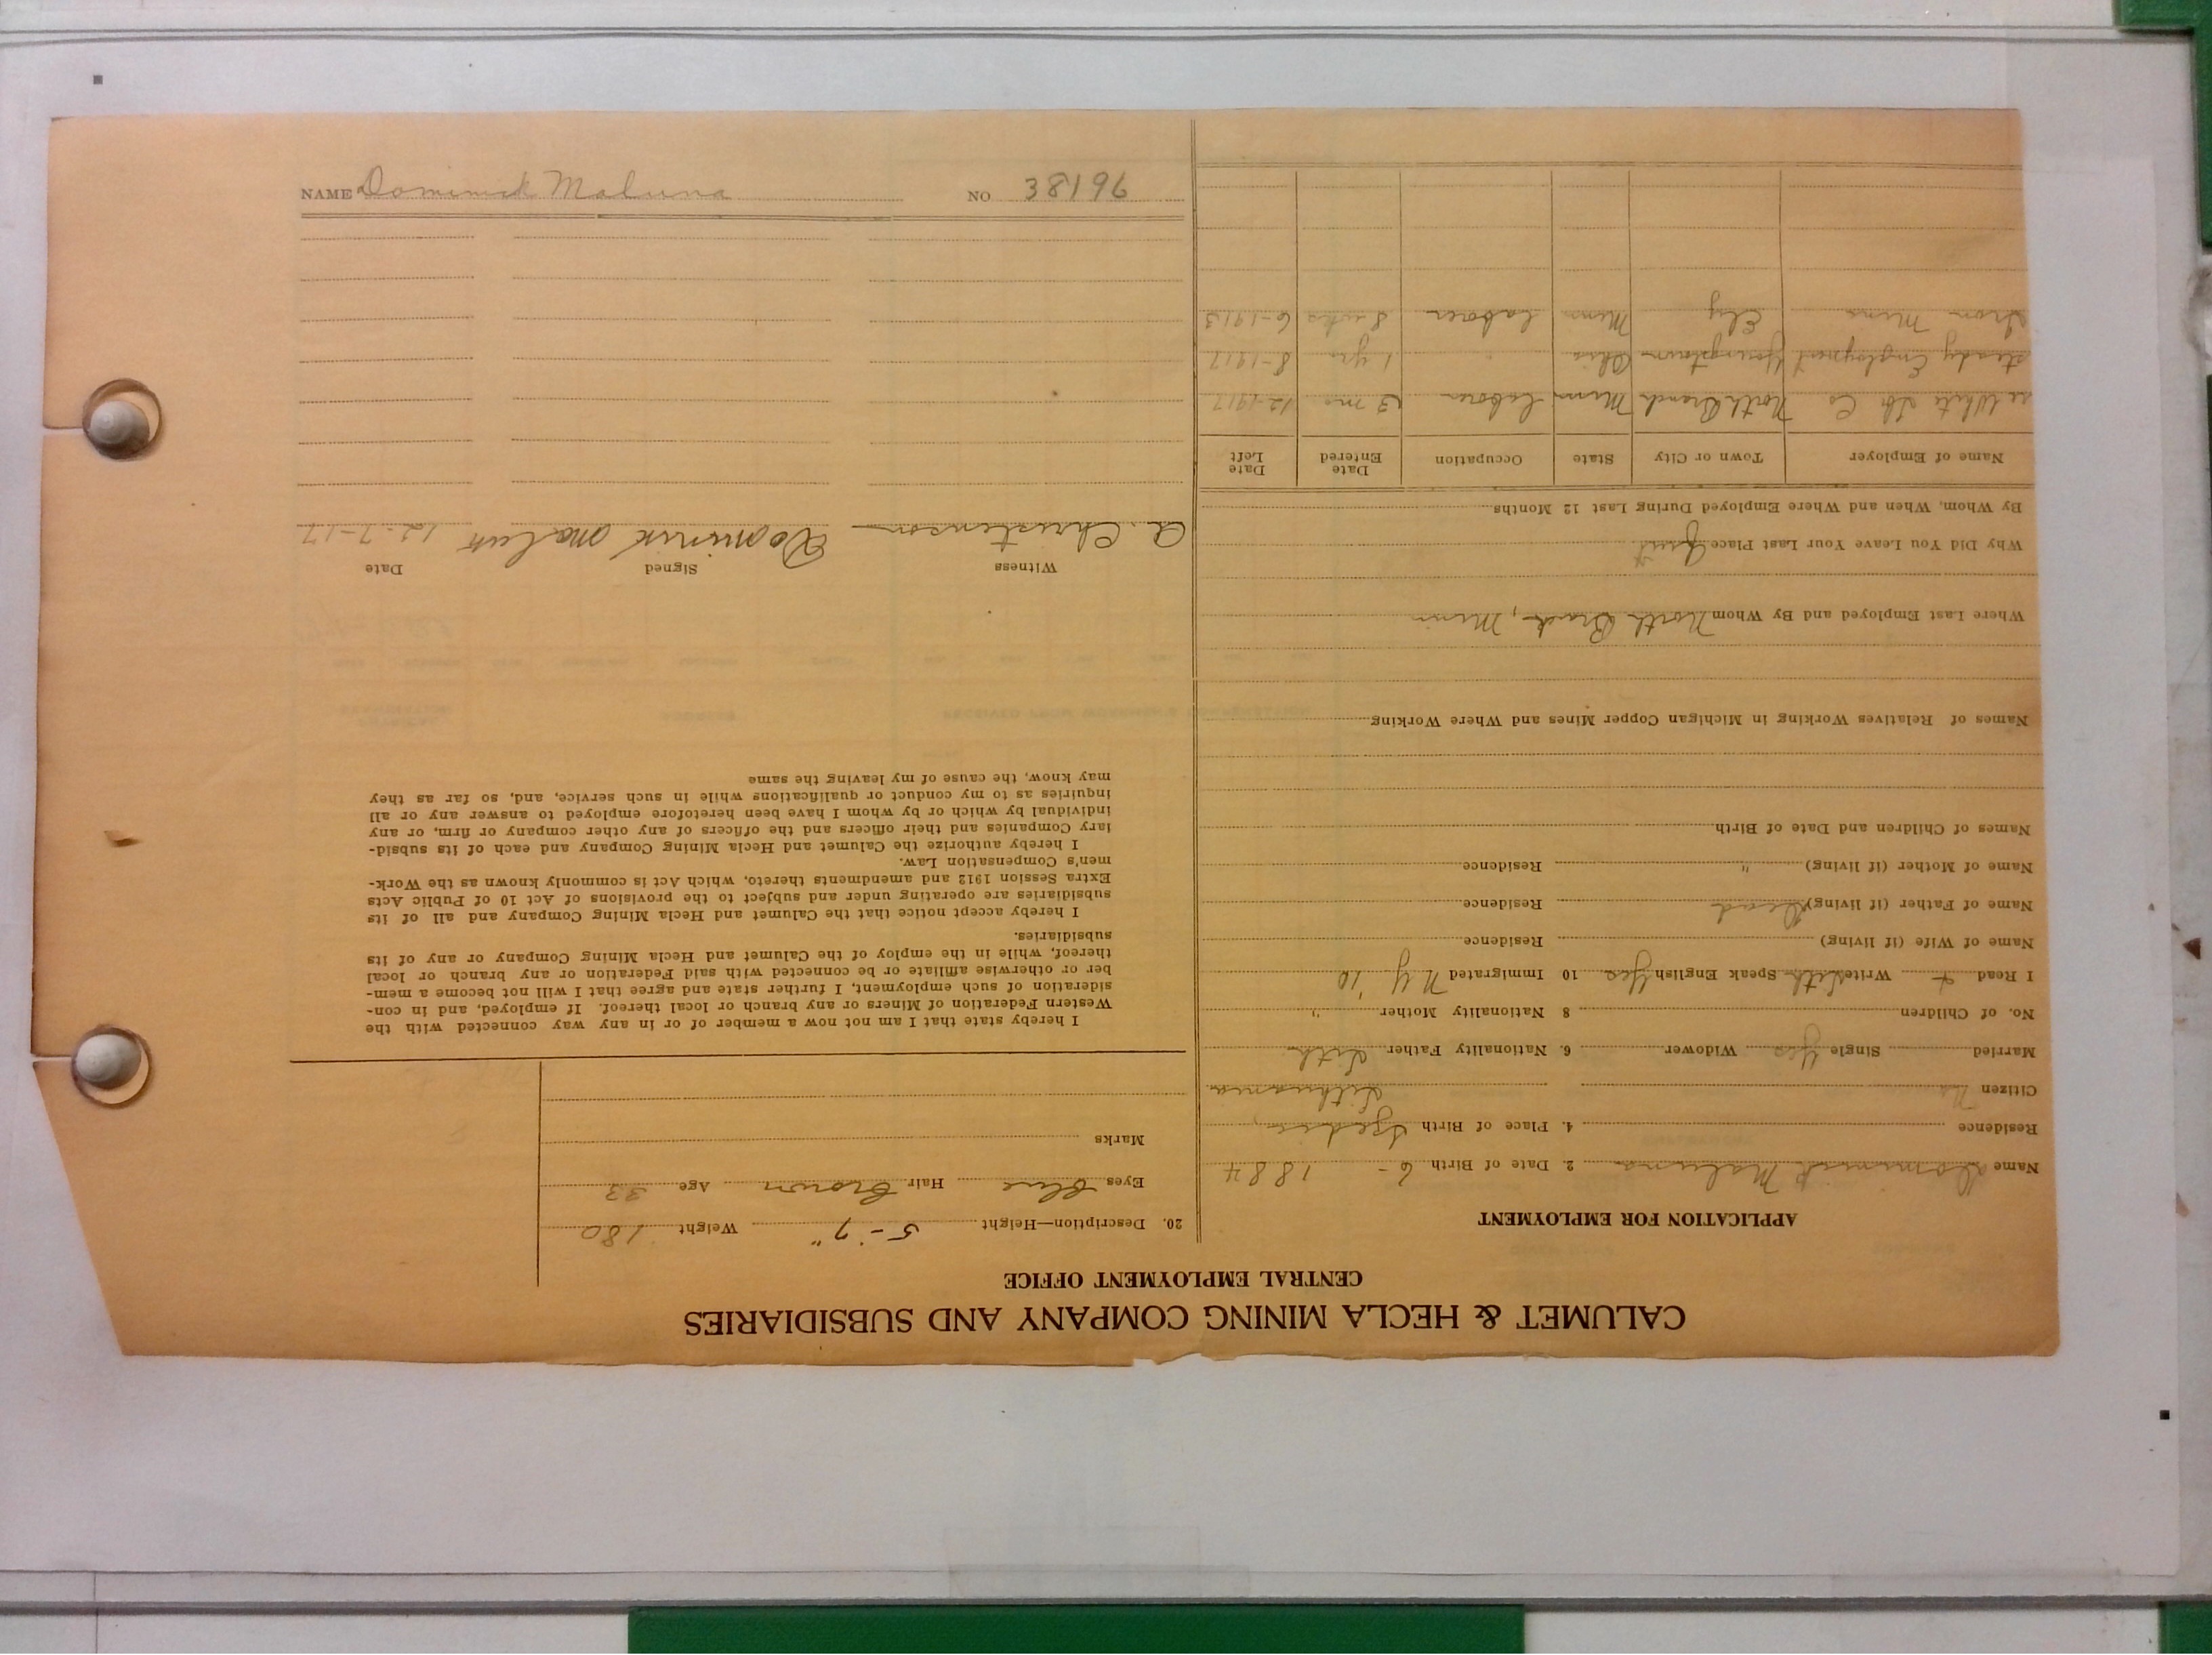 CALUMET & HECLA MINING COMPANY AND SUBSIDIARIES
CENTRAL EMPLOYMENT OFFICE
APPLICATION FOR EMPLOYMENT
Name Dominick Maluna 2. Date of Birth 6 - 1884
Residence 4. Place of Birth
Citizen No Lithuania
Married Single Yes Widower 6. Nationality Father Lith
No. of Children 8 Nationality Mother "
I Read + Write Lith Speak English Yes 10 Immigrated N Y '10
Name of Wife (if living) Residence
Name of Father (if living) Dead Residence
Name of Mother (if living) " Residence
Names of Children and Date of Birth
Names of Relatives Working in Michigan Copper Mines and Where Working
Where Last Employed and By Whom North Branch, Minn
Why Did You Leave Your Last Place Quit
By Whom, When and Where Employed During Last 12 Months
Name of Employer Town or City State Occupation Date Entered Date Left
White Co North Branch Minn laborer 3 mo 12-1917
steady Employment Youngstown Ohio " 1 yrs 8-1917
Iron Mine Ely Minn laborer 8 wks 6-1913
20. Description—Height 5-7" Weight 180
Eyes Blue Hair Brown Age 33
Marks
I hereby state that I am not now a member of or in any way connected with the
Western Federation of Miners or any branch or local thereof. If employed, and in con-
sideration of such employment, I further state and agree that I will not become a mem-
ber or otherwise affiliate or be connected with said Federation or any branch or local
thereof, while in the employ of the Calumet and Hecla Mining Company or any of its
subsidiaries.
I hereby accept notice that the Calumet and Hecla Mining Company and all of its
subsidiaries are operating under and subject to the provisions of Act 10 of Public Acts
Extra Session 1912 and amendments thereto, which Act is commonly known as the Work-
men's Compensation Law.
I hereby authorize the Calumet and Hecla Mining Company and each of its subsid-
iary Companies and their officers and the officers of any other company or firm, or any
individual by which or by whom I have been heretofore employed to answer any or all
inquiries as to my conduct or qualifications while in such service, and, so far as they
may know, the cause of my leaving the same
Witness Signed Date
A. Christenson Dominik 12-7-17
NAME Dominick Maluna NO 38196